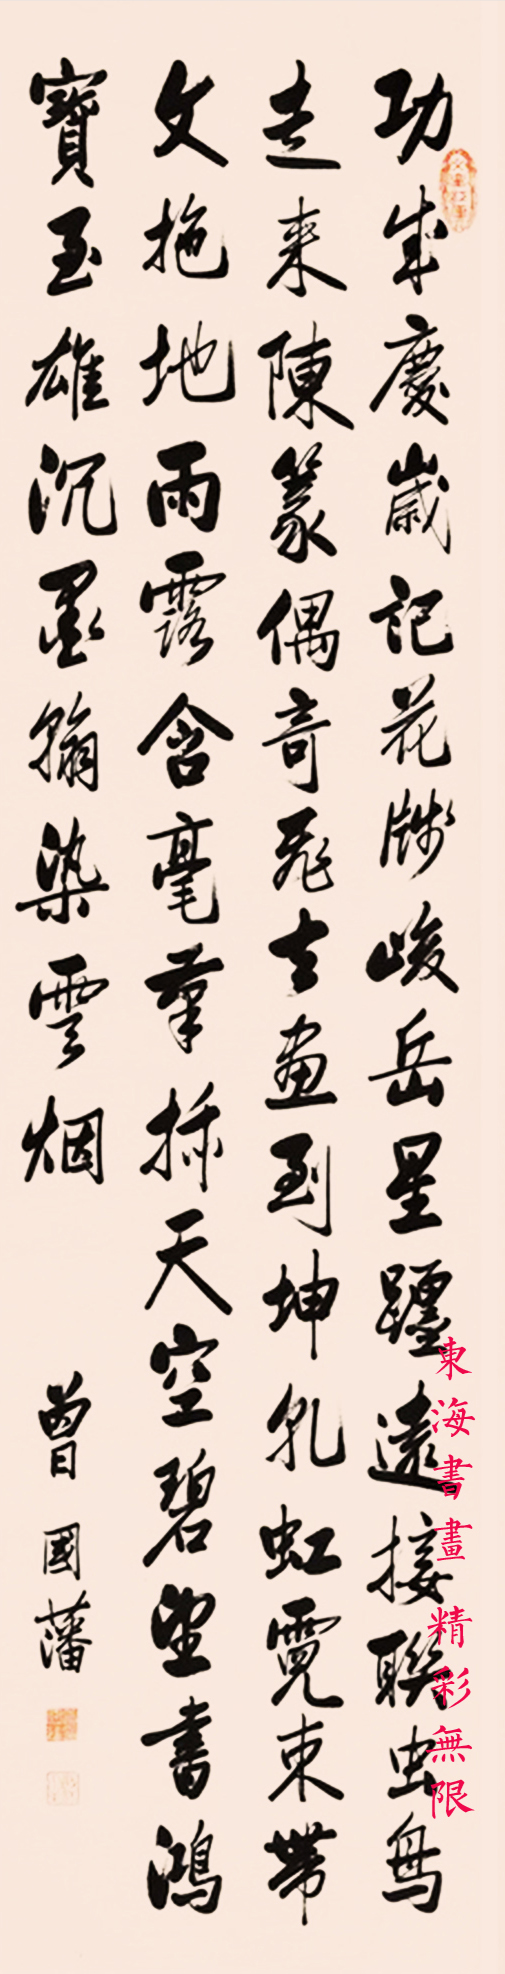 功成慶歲記花牋峻岳星躔遠接聯虫鳥
走來陳篆偶奇飛去畫到坤乳虹霓束帶
文拖地雨露含毫筆插天空碧望書鴻
寶玉雄沉墨翰染雲烟
曾國藩
東海書畫精彩無限